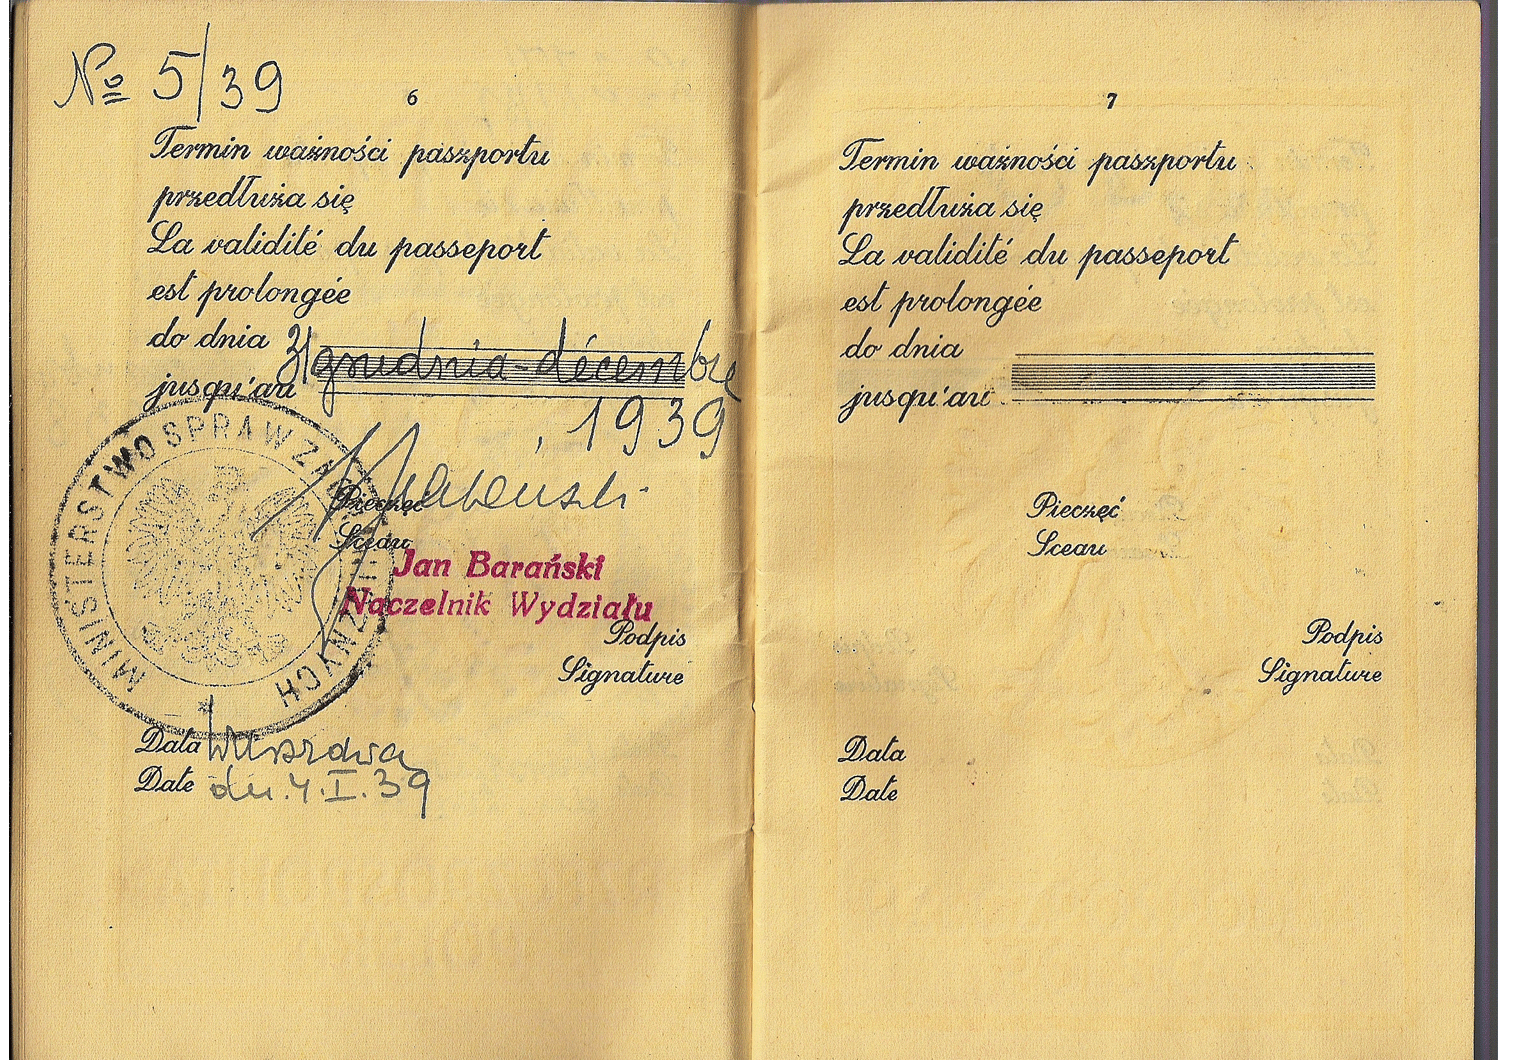 № 5/39
6
Termin ważności paszportu
przedłuża się
La validité du passeport
est prolongée
do dnia 31 grudnia-décembre
jusqu'au
1939
MINISTERSTWO SPRAW ZAGRANICZNYCH
Pieczęć
Sceau
Jan Barański
Naczelnik Wydziału
Podpis
Signature
Data Warszawa
Date dn. 4.I.39
7
Termin ważności paszportu
przedłuża się
La validité du passeport
est prolongée
do dnia
jusqu'au
Pieczęć
Sceau
Podpis
Signature
Data
Date